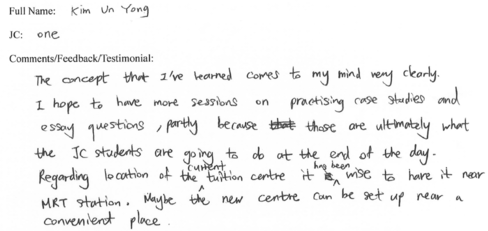 Full Name: Kim Un Yong
JC: one
Comments/Feedback/Testimonial:
The concept that I've learned comes to my mind very clearly.
I hope to have more sessions on practising case studies and
essay questions, partly because that those are ultimately what
the JC students are going to do at the end of the day.
Regarding location of the current tuition centre it is has been wise to have it near
MRT station. Maybe the new centre can be set up near a
convenient place.